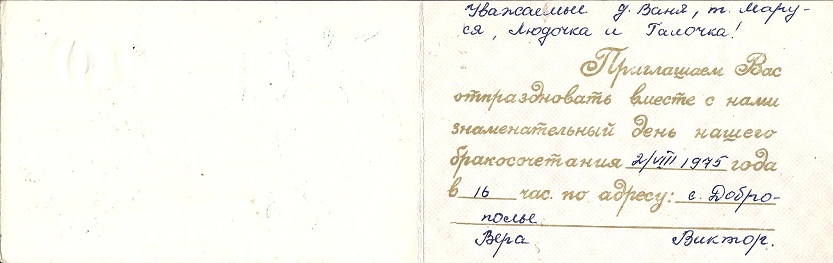 Уважаемые д. Ваня, т. Мару-
ся, Людочка и Галочка!
Приглашаем Вас
отпраздновать вместе с нами
знаменательный день нашего
бракосочетания 2/VIII 1975 года
в 16 час. по адресу: с. Добро-
полье
Вера Виктор.